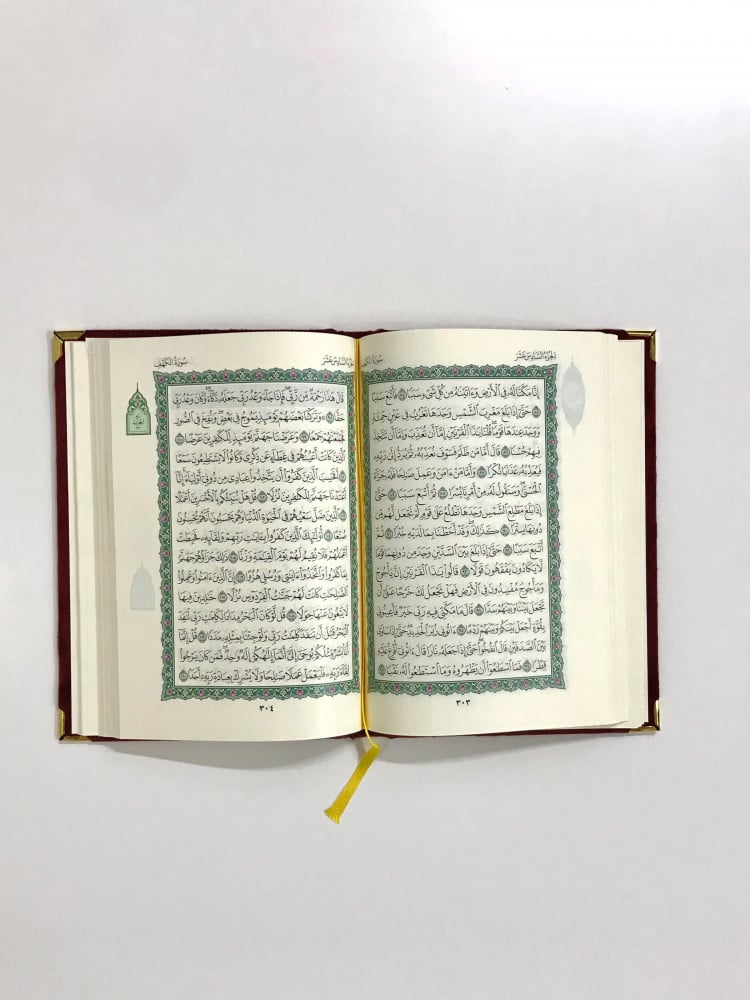 الجزء السادس عشر
سورة الكهف
إِنَّا مَكَّنَّا لَهُۥ فِى ٱلْأَرْضِ وَءَاتَيْنَٰهُ مِن كُلِّ شَىْءٍ سَبَبًا ٨٤ فَأَتْبَعَ سَبَبًا
٨٥ حَتَّىٰٓ إِذَا بَلَغَ مَغْرِبَ ٱلشَّمْسِ وَجَدَهَا تَغْرُبُ فِى عَيْنٍ حَمِئَةٍ
وَوَجَدَ عِندَهَا قَوْمًا قُلْنَا يَٰذَا ٱلْقَرْنَيْنِ إِمَّآ أَن تُعَذِّبَ وَإِمَّآ أَن تَتَّخِذَ
فِيهِمْ حُسْنًا ٨٦ قَالَ أَمَّا مَن ظَلَمَ فَسَوْفَ نُعَذِّبُهُۥ ثُمَّ يُرَدُّ إِلَىٰ رَبِّهِۦ
فَيُعَذِّبُهُۥ عَذَابًا نُّكْرًا ٨٧ وَأَمَّا مَنْ ءَامَنَ وَعَمِلَ صَٰلِحًا فَلَهُۥ جَزَآءً
ٱلْحُسْنَىٰ وَسَنَقُولُ لَهُۥ مِنْ أَمْرِنَا يُسْرًا ٨٨ ثُمَّ أَتْبَعَ سَبَبًا ٨٩ حَتَّىٰٓ
إِذَا بَلَغَ مَطْلِعَ ٱلشَّمْسِ وَجَدَهَا تَطْلُعُ عَلَىٰ قَوْمٍ لَّمْ نَجْعَل لَّهُم مِّن
دُونِهَا سِتْرًا ٩٠ كَذَٰلِكَ وَقَدْ أَحَطْنَا بِمَا لَدَيْهِ خُبْرًا ٩١ ثُمَّ
أَتْبَعَ سَبَبًا ٩٢ حَتَّىٰٓ إِذَا بَلَغَ بَيْنَ ٱلسَّدَّيْنِ وَجَدَ مِن دُونِهِمَا قَوْمًا
لَّا يَكَادُونَ يَفْقَهُونَ قَوْلًا ٩٣ قَالُوا۟ يَٰذَا ٱلْقَرْنَيْنِ إِنَّ يَأْجُوجَ
وَمَأْجُوجَ مُفْسِدُونَ فِى ٱلْأَرْضِ فَهَلْ نَجْعَلُ لَكَ خَرْجًا عَلَىٰٓ أَن
تَجْعَلَ بَيْنَنَا وَبَيْنَهُمْ سَدًّا ٩٤ قَالَ مَا مَكَّنِّى فِيهِ رَبِّى خَيْرٌ فَأَعِينُونِى
بِقُوَّةٍ أَجْعَلْ بَيْنَكُمْ وَبَيْنَهُمْ رَدْمًا ٩٥ ءَاتُونِى زُبَرَ ٱلْحَدِيدِ حَتَّىٰٓ إِذَا سَاوَىٰ
بَيْنَ ٱلصَّدَفَيْنِ قَالَ ٱنفُخُوا۟ حَتَّىٰٓ إِذَا جَعَلَهُۥ نَارًا قَالَ ءَاتُونِىٓ أُفْرِغْ عَلَيْهِ
قِطْرًا ٩٦ فَمَا ٱسْطَٰعُوٓا۟ أَن يَظْهَرُوهُ وَمَا ٱسْتَطَٰعُوا۟ لَهُۥ نَقْبًا ٩٧
٣٠٣
الجزء السادس عشر
سورة الكهف
قَالَ هَٰذَا رَحْمَةٌ مِّن رَّبِّى فَإِذَا جَآءَ وَعْدُ رَبِّى جَعَلَهُۥ دَكَّآءَ وَكَانَ وَعْدُ رَبِّى
حَقًّا ٩٨ وَتَرَكْنَا بَعْضَهُمْ يَوْمَئِذٍ يَمُوجُ فِى بَعْضٍ وَنُفِخَ فِى ٱلصُّورِ
فَجَمَعْنَٰهُمْ جَمْعًا ٩٩ وَعَرَضْنَا جَهَنَّمَ يَوْمَئِذٍ لِّلْكَٰفِرِينَ عَرْضًا ١٠٠
ٱلَّذِينَ كَانَتْ أَعْيُنُهُمْ فِى غِطَآءٍ عَن ذِكْرِى وَكَانُوا۟ لَا يَسْتَطِيعُونَ سَمْعًا
١٠١ أَفَحَسِبَ ٱلَّذِينَ كَفَرُوٓا۟ أَن يَتَّخِذُوا۟ عِبَادِى مِن دُونِىٓ أَوْلِيَآءَ إِنَّآ
أَعْتَدْنَا جَهَنَّمَ لِلْكَٰفِرِينَ نُزُلًا ١٠٢ قُلْ هَلْ نُنَبِّئُكُم بِٱلْأَخْسَرِينَ أَعْمَٰلًا
١٠٣ ٱلَّذِينَ ضَلَّ سَعْيُهُمْ فِى ٱلْحَيَوٰةِ ٱلدُّنْيَا وَهُمْ يَحْسَبُونَ أَنَّهُمْ يُحْسِنُونَ
صُنْعًا ١٠٤ أُو۟لَٰٓئِكَ ٱلَّذِينَ كَفَرُوا۟ بِـَٔايَٰتِ رَبِّهِمْ وَلِقَآئِهِۦ فَحَبِطَتْ
أَعْمَٰلُهُمْ فَلَا نُقِيمُ لَهُمْ يَوْمَ ٱلْقِيَٰمَةِ وَزْنًا ١٠٥ ذَٰلِكَ جَزَآؤُهُمْ جَهَنَّمُ
بِمَا كَفَرُوا۟ وَٱتَّخَذُوٓا۟ ءَايَٰتِى وَرُسُلِى هُزُوًا ١٠٦ إِنَّ ٱلَّذِينَ ءَامَنُوا۟ وَعَمِلُوا۟
ٱلصَّٰلِحَٰتِ كَانَتْ لَهُمْ جَنَّٰتُ ٱلْفِرْدَوْسِ نُزُلًا ١٠٧ خَٰلِدِينَ فِيهَا
لَا يَبْغُونَ عَنْهَا حِوَلًا ١٠٨ قُل لَّوْ كَانَ ٱلْبَحْرُ مِدَادًا لِّكَلِمَٰتِ رَبِّى لَنَفِدَ
ٱلْبَحْرُ قَبْلَ أَن تَنفَدَ كَلِمَٰتُ رَبِّى وَلَوْ جِئْنَا بِمِثْلِهِۦ مَدَدًا ١٠٩ قُلْ إِنَّمَآ
أَنَا۠ بَشَرٌ مِّثْلُكُمْ يُوحَىٰٓ إِلَىَّ أَنَّمَآ إِلَٰهُكُمْ إِلَٰهٌ وَٰحِدٌ فَمَن كَانَ يَرْجُوا۟
لِقَآءَ رَبِّهِۦ فَلْيَعْمَلْ عَمَلًا صَٰلِحًا وَلَا يُشْرِكْ بِعِبَادَةِ رَبِّهِۦٓ أَحَدًۢا ١١٠
٣٠٤